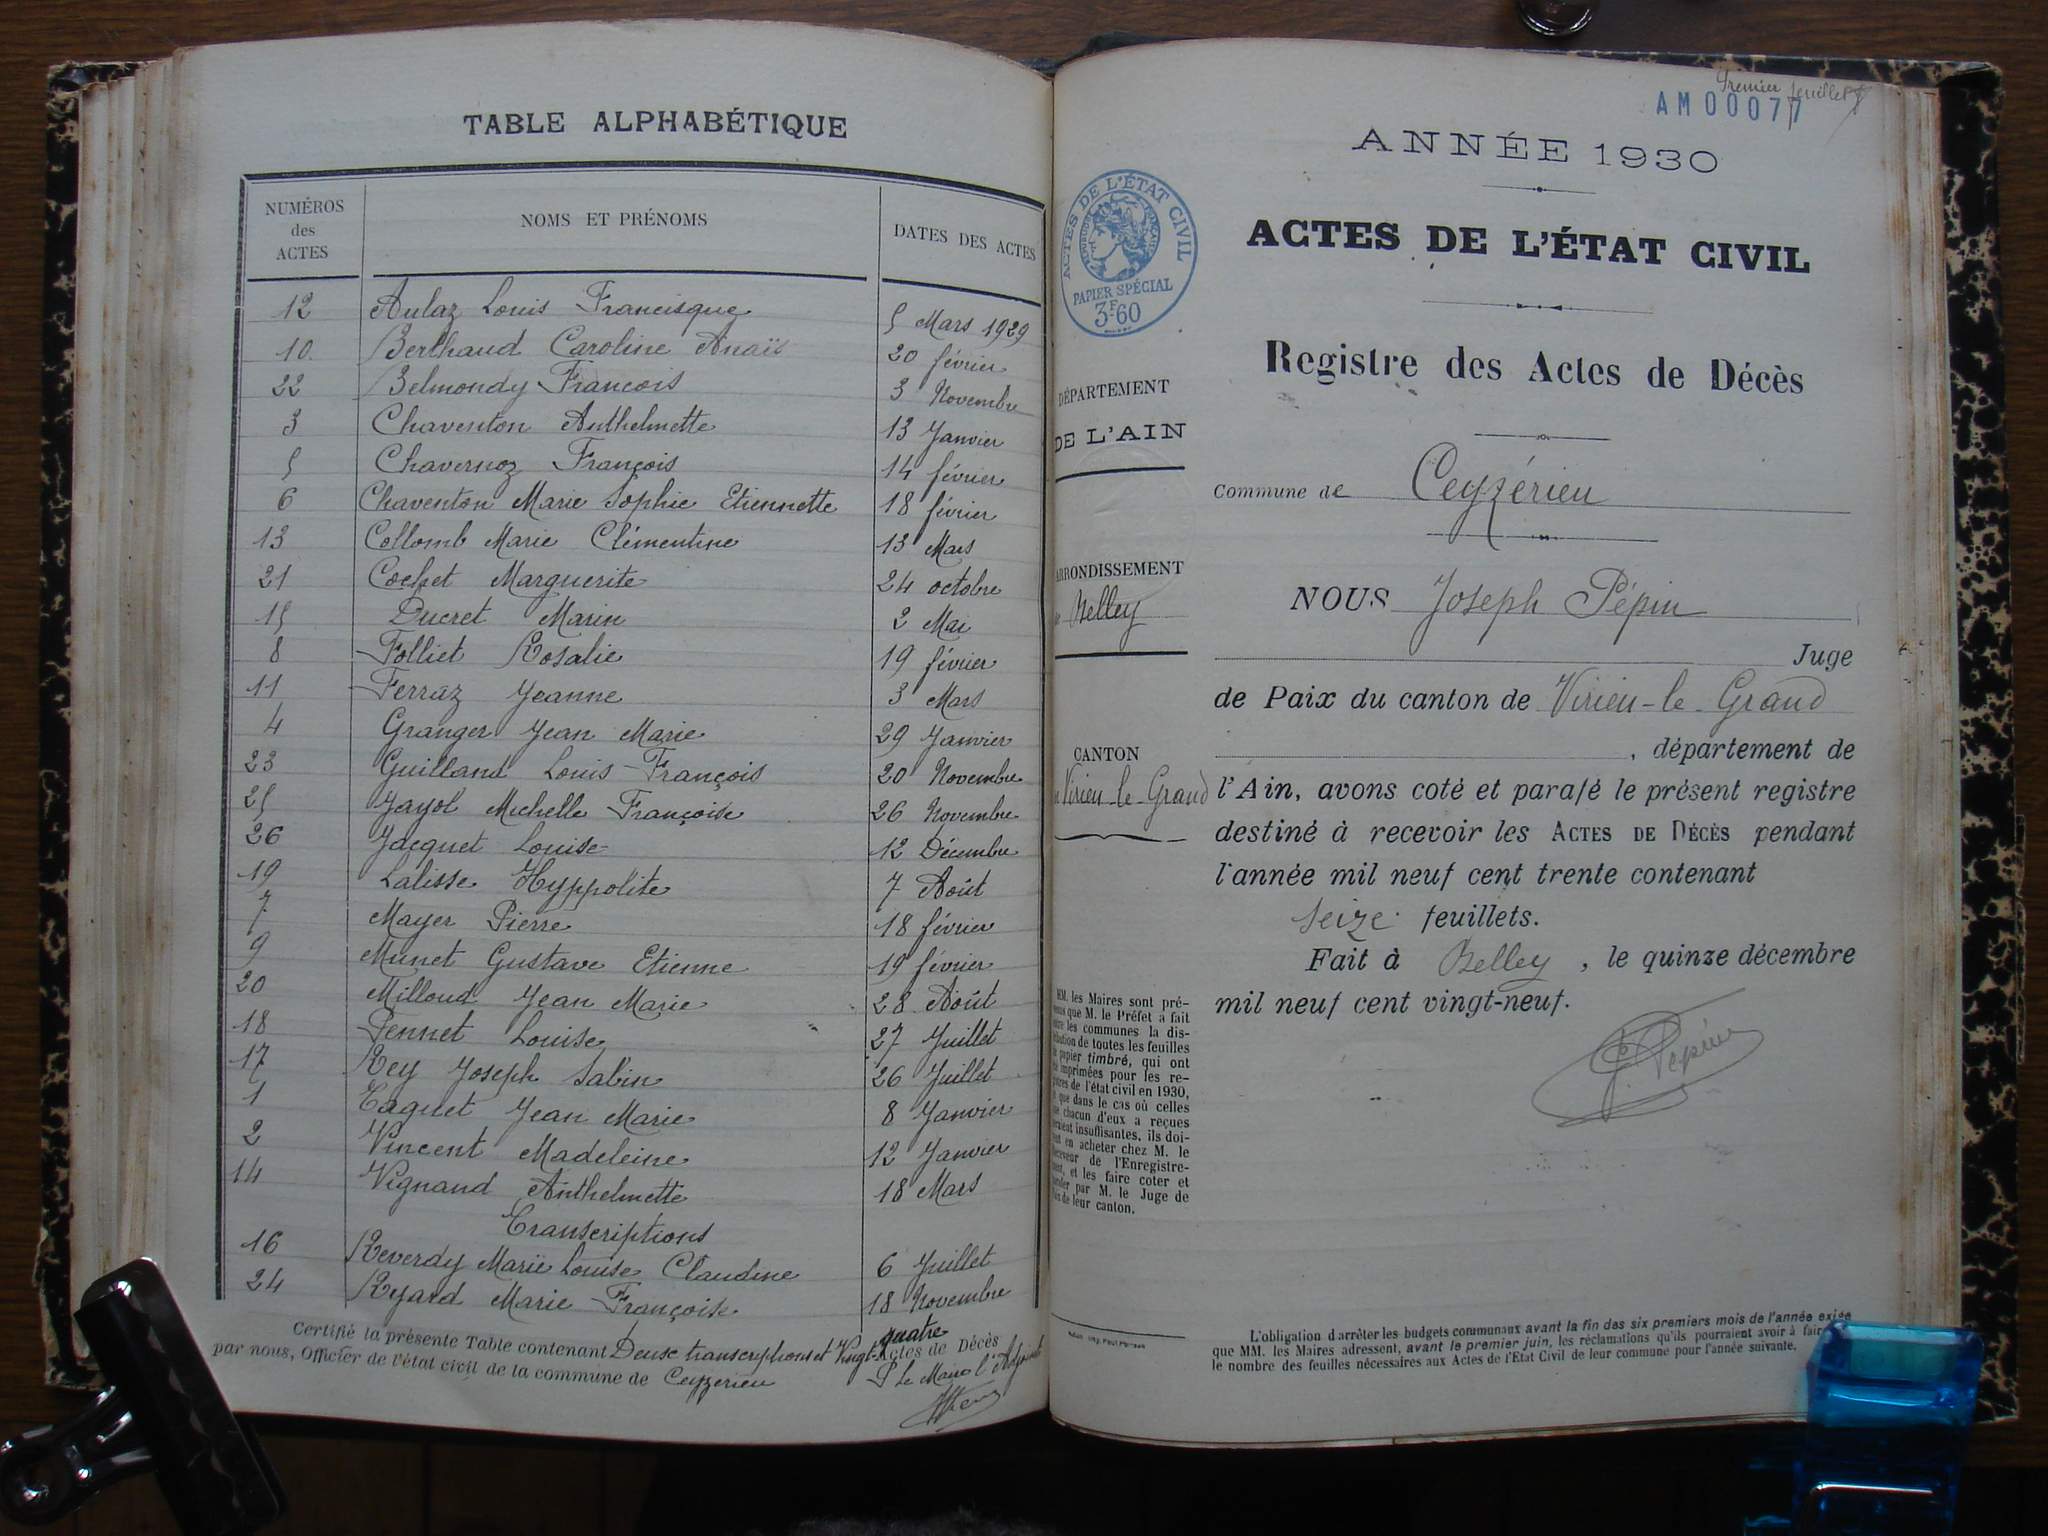 TABLE ALPHABÉTIQUE
NUMÉROS des ACTES NOMS ET PRÉNOMS DATES DES ACTES
12 Aulaz Louis Francisque 5 Mars 1929
10 Berthaud Caroline Anaïs 20 février
22 Belmondy François 3 Novembre
3 Chaventon Anthelmette 13 Janvier
5 Chavernoz François 14 février
6 Chaventon Marie Sophie Etiennette 18 février
13 Collomb Marie Clémentine 13 Mars
21 Cochet Marguerite 24 octobre
15 Ducret Marin 2 Mai
8 Folliet Rosalie 19 février
11 Ferraz Jeanne 3 Mars
4 Granger Jean Marie 29 Janvier
23 Guilland Louis François 20 Novembre
25 Jayol Michelle Françoise 26 Novembre
26 Jacquet Louise 12 Décembre
19 Lalisse Hyppolite 7 Août
7 Mayer Pierre 18 février
9 Munet Gustave Etienne 19 février
20 Milloud Jean Marie 28 Août
18 Pennet Louise 27 Juillet
17 Rey Joseph Sabin 26 Juillet
1 Taguet Jean Marie 8 Janvier
2 Vincent Madeleine 12 Janvier
14 Vignand Anthelmette 18 Mars
Transcriptions
16 Reverdy Marie Louise Claudine 6 Juillet
24 Ryard Marie Françoise 18 Novembre
Certifié la présente Table contenant Deux transcriptions et Vingt-quatre Actes de Décès
par nous, Officier de l'état civil de la commune de Ceyzerieu P Le Maire l'Adjoint
Premier feuillet
AM00077
ANNÉE 1930
ACTES DE L'ÉTAT CIVIL
PAPIER SPÉCIAL
3F60
ACTES DE L'ÉTAT CIVIL
Registre des Actes de Décès
DÉPARTEMENT
DE L'AIN
ARRONDISSEMENT
de Belley
CANTON
de Virieu-le-Grand
Commune de Ceyzérieu
NOUS Joseph Pépin
Juge
de Paix du canton de Virieu-le-Grand
, département de
l'Ain, avons coté et parafé le présent registre
destiné à recevoir les ACTES DE DÉCÈS pendant
l'année mil neuf cent trente contenant
seize feuillets.
Fait à Belley, le quinze décembre
mil neuf cent vingt-neuf.
J. Pépin
MM. les Maires sont pré-
venus que M. le Préfet a fait
entre les communes la dis-
tribution de toutes les feuilles
de papier timbré, qui ont
été imprimées pour les re-
gistres de l'état civil en 1930,
et que dans le cas où celles
que chacun d'eux a reçues
seraient insuffisantes, ils doi-
vent en acheter chez M. le
Receveur de l'Enregistre-
ment, et les faire coter et
parafer par M. le Juge de
Paix de leur canton.
L'obligation d'arrêter les budgets communaux avant la fin des six premiers mois de l'année exige
que MM. les Maires adressent, avant le premier juin, les réclamations qu'ils pourraient avoir à faire
le nombre des feuilles nécessaires aux Actes de l'Etat Civil de leur commune pour l'année suivante.